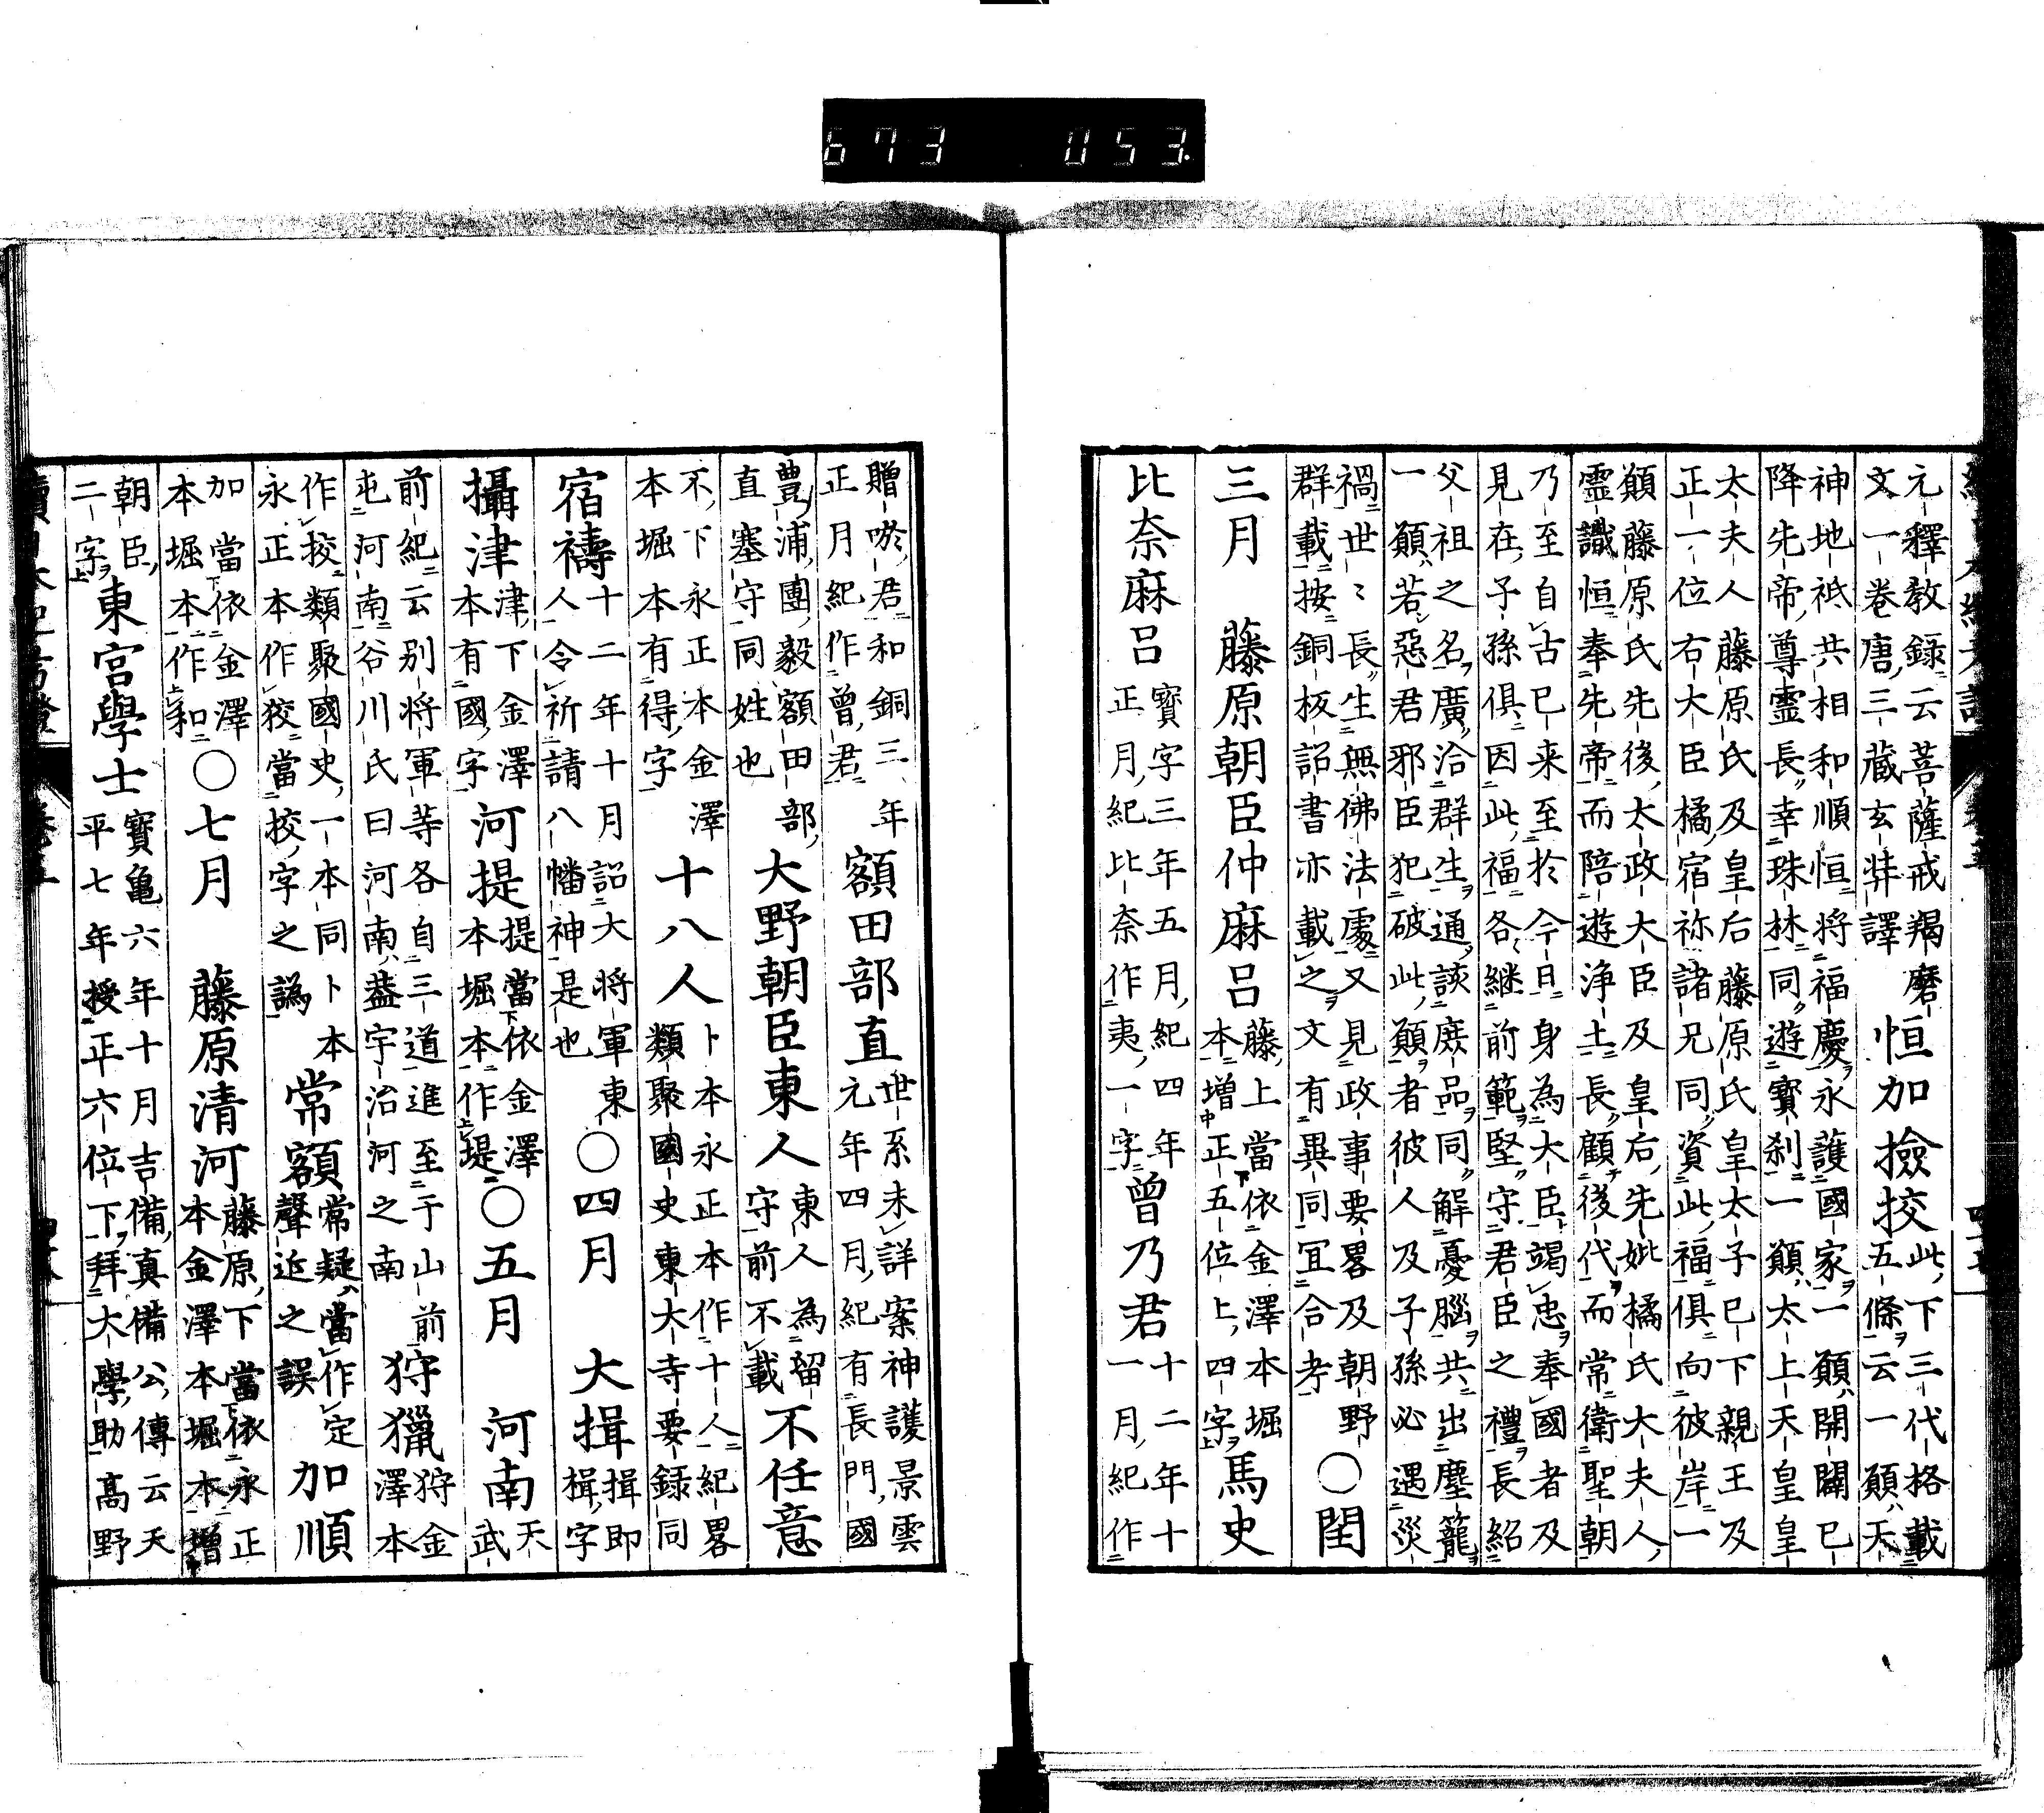 673 053.
元釋教録云菩薩戒羯磨
文一卷唐三藏玄弉譯
恒加撿挍
此下三代格載
五條云一願天
神地祇共相和順恒將福慶永護國家一願開闢已
降先帝尊靈長幸珠林同遊寶刹一願太上天皇皇
太夫人藤原氏及皇后藤原氏皇太子已下親王及
正一位右大臣橘宿祢諸兄同資此福俱向彼岸一
願藤原氏先後太政大臣及皇后先妣橘氏大夫人
霊識恒奉先帝而陪遊浄土長顧後代而常衛聖朝
乃至自古已来至於今日身為大臣竭忠奉國者及
見在子孫俱因此福各継前範堅守君臣之禮長紹
父祖之名廣洽群生通該庶品同解憂腦共出塵籠
一願若惡君邪臣犯破此願者彼人及子孫必遇災
禍世〻長生無佛法處又見政事要畧及朝野
群載按銅板詔書亦載之文有異同宜合考
〇閏
三月　藤原朝臣仲麻呂
藤上當依金澤本堀
本増正五位上四字
馬史
比奈麻呂
寳字三年五月紀四年
正月紀比奈作夷一字
曽乃君
十二年十
一月紀作
贈唹君和銅三年
正月紀作曽君
額田部直
世系未詳案神護景雲
元年四月紀有長門國
豊浦團毅額田部
直塞守同姓也
大野朝臣東人
東人為留
守前不載
不任意
不下永正本金澤
本堀本有得字
十八人
卜本永正本作十人紀畧
類聚國史東大寺要録同
宿禱
十二年十月詔大将軍東
人令祈請八幡神是也
〇四月　大揖
揖即
楫字
攝津
津下金澤
本有國字
河提
提當依金澤
本堀本作堤
〇五月　河南
天
武
前紀云别将軍等各自三道進至于山前
屯河南谷川氏曰河南葢宇治河之南
狩獵
狩金
澤本
作挍類聚國史一本同卜本
永正本作狡當挍字之譌
常額
常疑當作定
聲近之誤
加順
加當依金澤
本堀本作和
〇七月　藤原清河
藤原下當依永正
本金澤本堀本増
朝臣
二字
東宮學士
寳亀六年十月吉備真備公傳云天
平七年授正六位下拜大學助高野